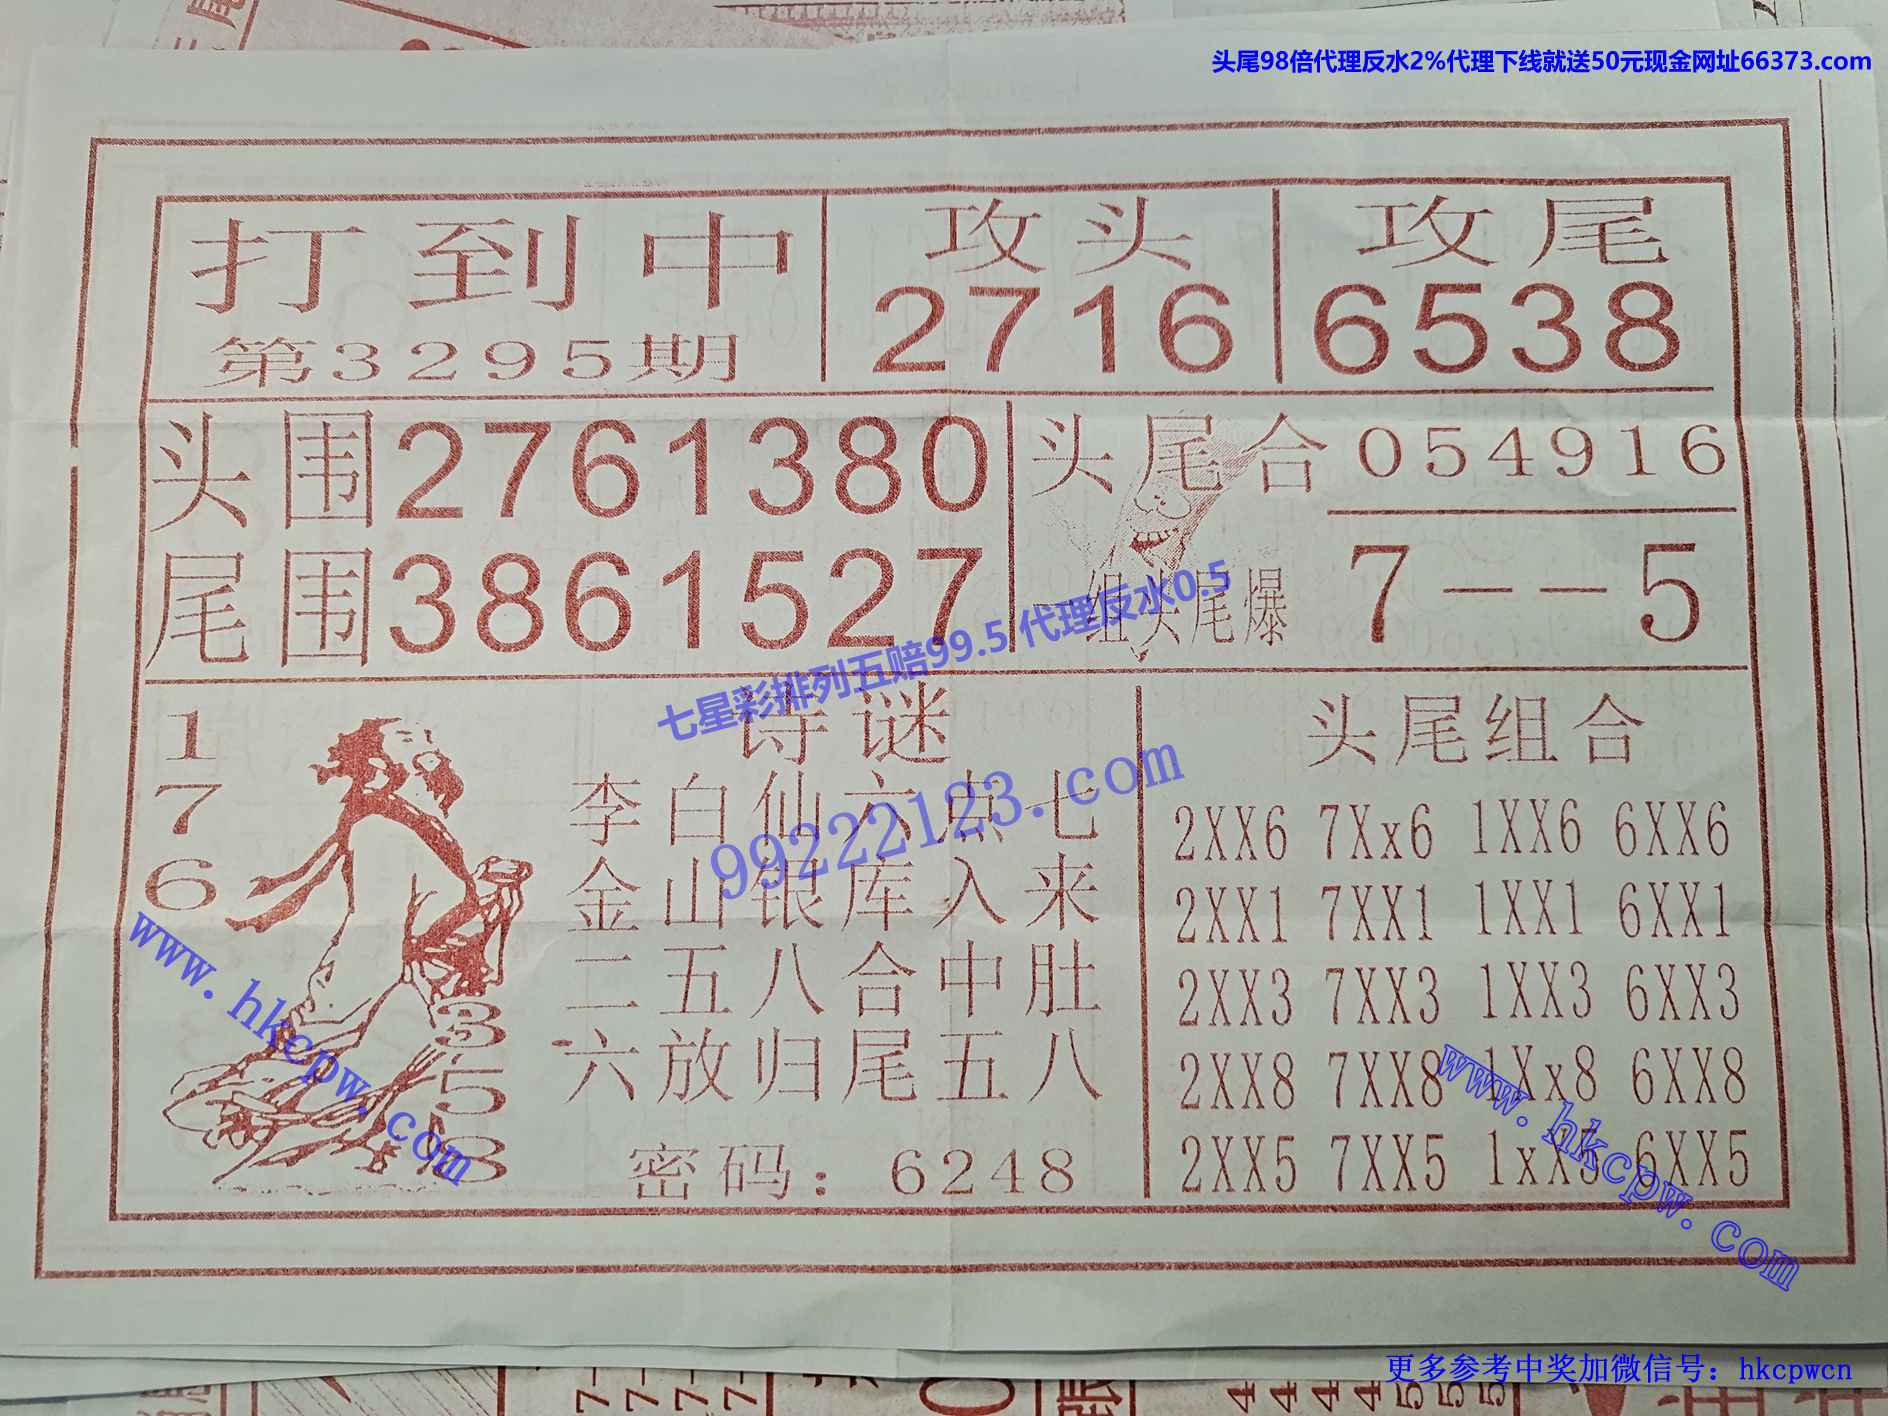 头尾98倍代理反水2%代理下线就送50元现金网址66373.com
打到中
第3295期
攻头
2716
攻尾
6538
头围2761380
尾围3861527
头尾合 054916
一组头尾爆 7--5
七星彩排列五赔99.5 代理反水0.5
99222123.com
1
7
6
3
5
8
诗谜
李白仙六点七
金山银库入来
二五八合中肚
六放归尾五八
密码：6248
头尾组合
2XX6 7Xx6 1XX6 6XX6
2XX1 7XX1 1XX1 6XX1
2XX3 7XX3 1XX3 6XX3
2XX8 7XX8 1Xx8 6XX8
2XX5 7XX5 1xX5 6XX5
www.hkcpw.com
www.hkcpw.com
更多参考中奖加微信号：hkcpwcn